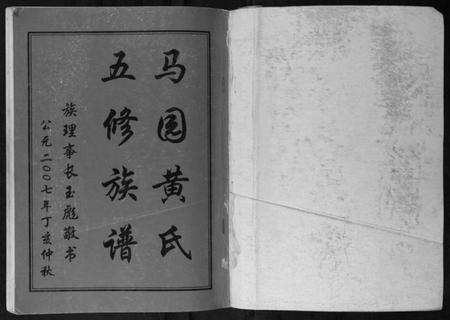 马园黄氏
五修族谱
族理事长玉彪敬书
公元二00七年丁亥仲秋